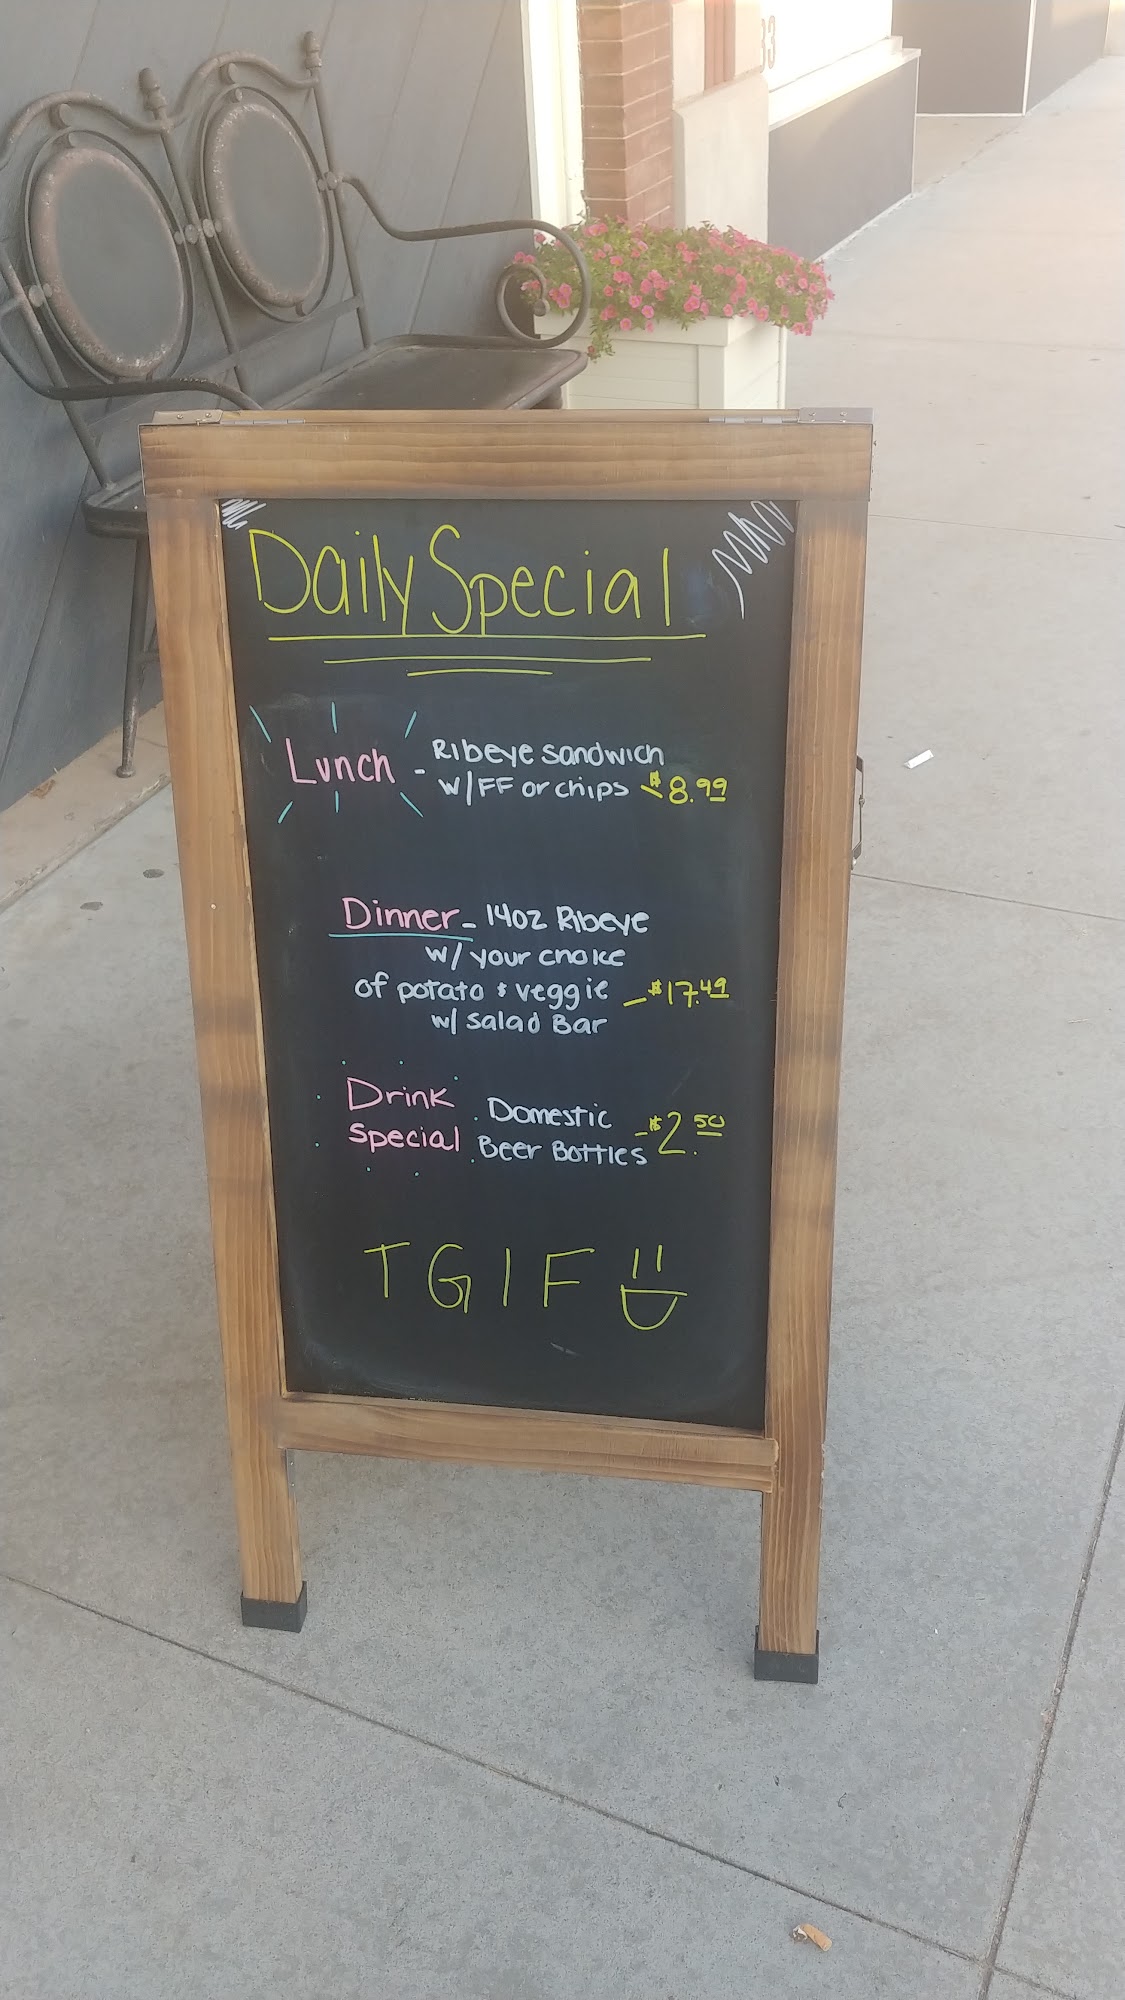 33
Daily Special
Lunch - Ribeye sandwich
w/FF or chips - $8.99
Dinner - 14oz Ribeye
w/ your choice
of potato & veggie - $17.49
w/ salad Bar
Drink Special
Domestic
Beer Bottles - $2.50
TGIF